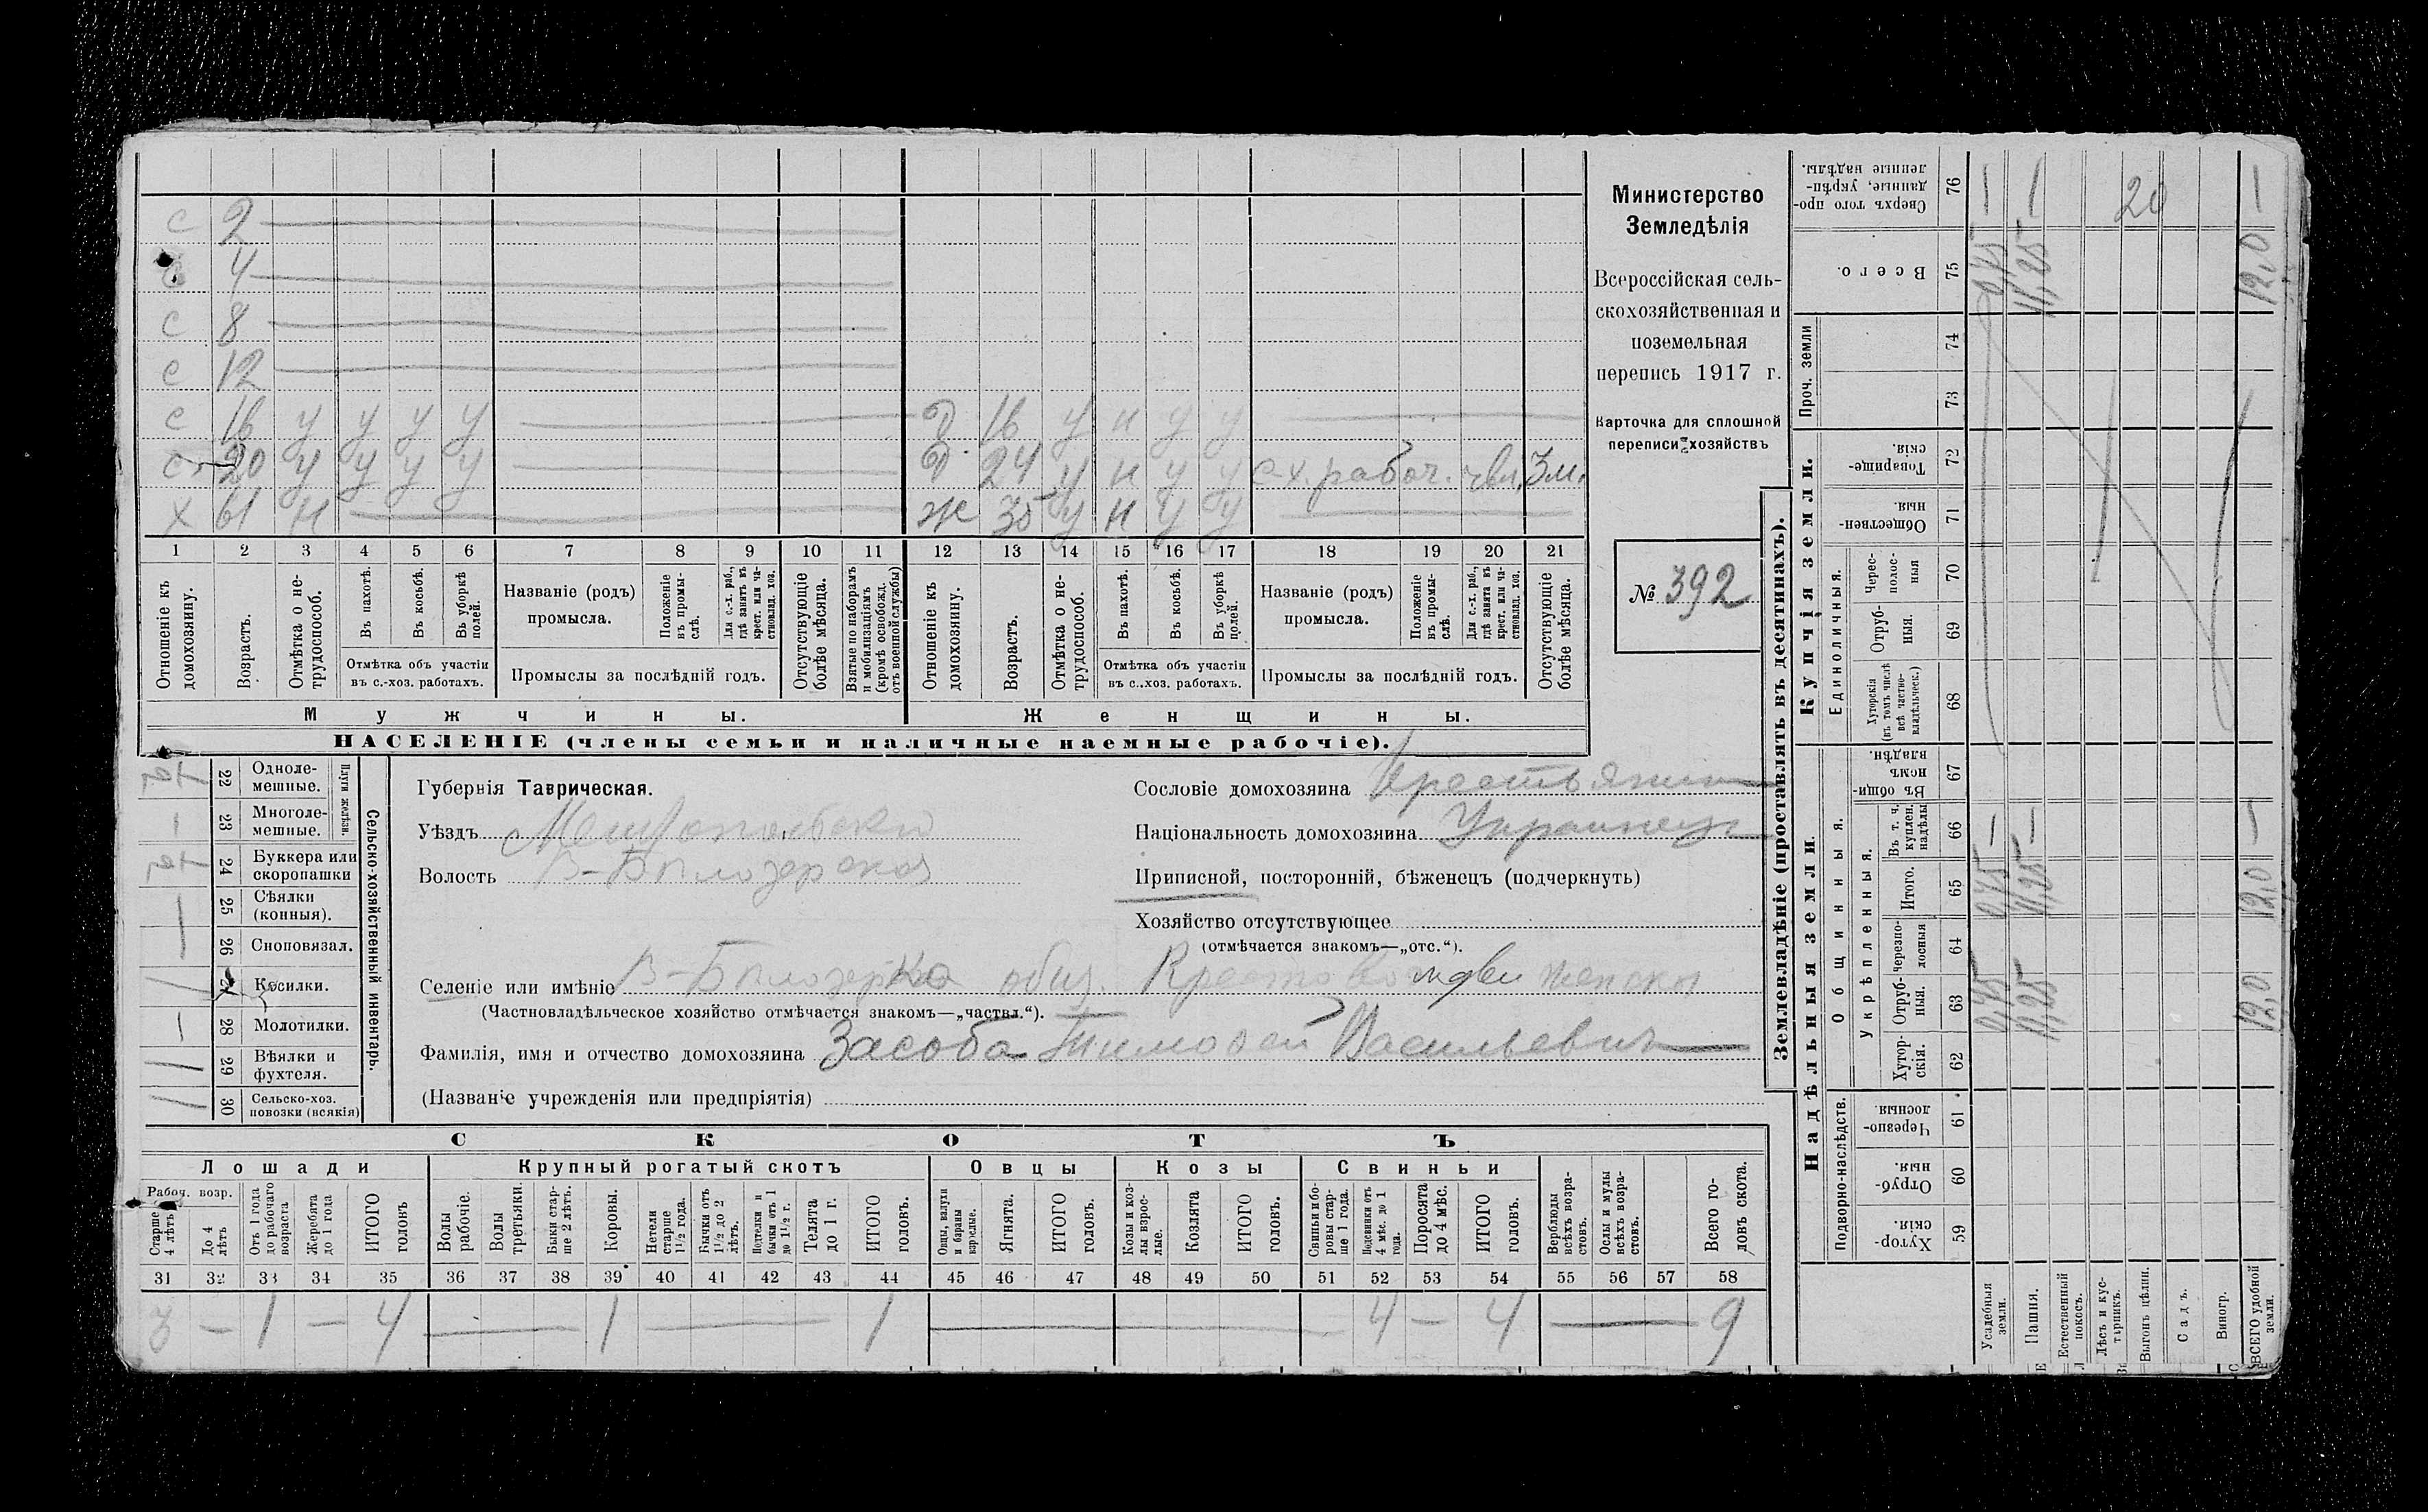 с 2
4
с 8
с 12
с 16 у у у у д 16 у н у у
20 у у у у д 24 у н у у с.х. рабоч. 3м.
х 61 н ж 35 у н у у
1 2 3 4 5 6 7 8 9 10 11 12 13 14 15 16 17 18 19 20 21
Отношеніе къ домохозяину.
Возрастъ.
Отмѣтка о не-трудоспособ.
Въ пахотѣ.
Въ косьбѣ.
Въ уборкѣ полей.
Отмѣтка объ участіи въ с.-хоз. работахъ.
Названіе (родъ) промысла.
Положеніе въ промы-слѣ.
Для с.-х. раб., гдѣ занятъ въ крест. или ча-стновлад. хоз.
Промыслы за послѣдній годъ.
Отсутствующіе болѣе мѣсяца.
Взятые по наборамъ и мобилизаціямъ (кромѣ освобожд. отъ военной службы)
Отношеніе къ домохозяину.
Возрастъ.
Отмѣтка о не-трудоспособ.
Въ пахотѣ.
Въ косьбѣ.
Въ уборкѣ полей.
Отмѣтка объ участіи въ с..хоз. работахъ.
Названіе (родъ) промысла.
Положеніе въ промы-слѣ.
Для с.-х. раб., гдѣ занята въ крест. или ча-стновлад. хоз.
Промыслы за послѣдній годъ.
Отсутствующіе болѣе мѣсяца.
Мужчины. Женщины.
НАСЕЛЕНІЕ (члены семьи и наличные наемные рабочіе).
Министерство
Земледѣлія
Всероссійская сель-
скохозяйственная и
поземельная
перепись 1917 г.
Карточка для сплошной
переписи хозяйствъ
№ 392
Сельско-хозяйственный инвентарь.
Плуги желѣзн.
22 Одноле-мешные.
23 Многоле-мешные.
24 Буккера или скоропашки
25 Сѣялки (конныя).
26 Сноповязал.
27 Косилки.
28 Молотилки.
29 Вѣялки и фухтеля.
30 Сельско-хоз. повозки (всякія)
Губернія Таврическая.
Уѣздъ Мелитопольскій
Волость В-Бѣлозерская
Сословіе домохозяина Крестьянин
Національность домохозяина Украинец
Приписной, посторонній, бѣженецъ (подчеркнуть)
Хозяйство отсутствующее
(отмѣчается знакомъ—„отс.“).
Селеніе или имѣніе В-Бѣлозерка общ. Крестовоздвиженски
(Частновладѣльческое хозяйство отмѣчается знакомъ—„частвл.“).
Фамилія, имя и отчество домохозяина Засоба Тимофей Васильевич
(Названіе учрежденія или предпріятія)
СКОТЪ
Лошади Крупный рогатый скотъ Овцы Козы Свиньи
Рабоч. возр.
Старше 4 лѣтъ
До 4 лѣтъ
Отъ 1 года до рабочаго возраста
Жеребята до 1 года
ИТОГО головъ
Волы рабочіе.
Волы третьяки.
Быки стар-ше 2 лѣтъ.
Коровы.
Нетели старше 1½ года.
Бычки отъ 1½ до 2 лѣтъ.
Подтелки и бычки отъ 1 до 1½ г.
Телята до 1 г.
ИТОГО головъ.
Овцы, валухи и бараны взрослые.
Ягнята.
ИТОГО головъ.
Козы и коз-лы взрос-лые.
Козлята
ИТОГО головъ.
Свиньи и бо-ровы стар-ше 1 года.
Подсвинки отъ 4 мѣс. до 1 года.
Поросята до 4 мѣс.
ИТОГО головъ.
Верблюды всѣхъ возра-стовъ.
Ослы и мулы всѣхъ возра-стовъ.
Всего го-ловъ скота.
31 32 33 34 35 36 37 38 39 40 41 42 43 44 45 46 47 48 49 50 51 52 53 54 55 56 57 58
3 — 1 — 4 — 1 — 1 — 4 — 4 — 9
Землевладѣніе (проставлять въ десятинахъ).
Надѣльныя земли. Купчія земли.
Подворно-наслѣдств.
Общинныя.
Укрѣпленныя.
Единоличныя.
Проч. земли
59 Хутор-скія.
60 Отруб-ныя.
61 Черезпо-лосныя
62 Хутор-скія.
63 Отруб-ныя.
64 Черезпо-лосныя
65 Итого.
66 Въ т. ч. куплен. надѣлы
67 Въ общи-номъ владѣн.
68 Хуторскія (въ томъ числѣ всѣ частно-владѣльческ.)
69 Отруб-ныя.
70 Черес-полос-ныя
71 Обществен-ныя.
72 Товарище-скія.
73
74
75 Всего.
76 Сверхъ того про-данные, укрѣп-ленные надѣлы.
Усадебныя земли. 0,75 0,75 — 0,75 —
Пашня. 11,25 11,25 — 11,25 —
Естественный покосъ.
Лѣсъ и кус-тарникъ.
Выгонъ цѣлин. 20
Садъ.
Виногр.
ВСЕГО удобной земли. 12,0 12,0 — 12,0 —